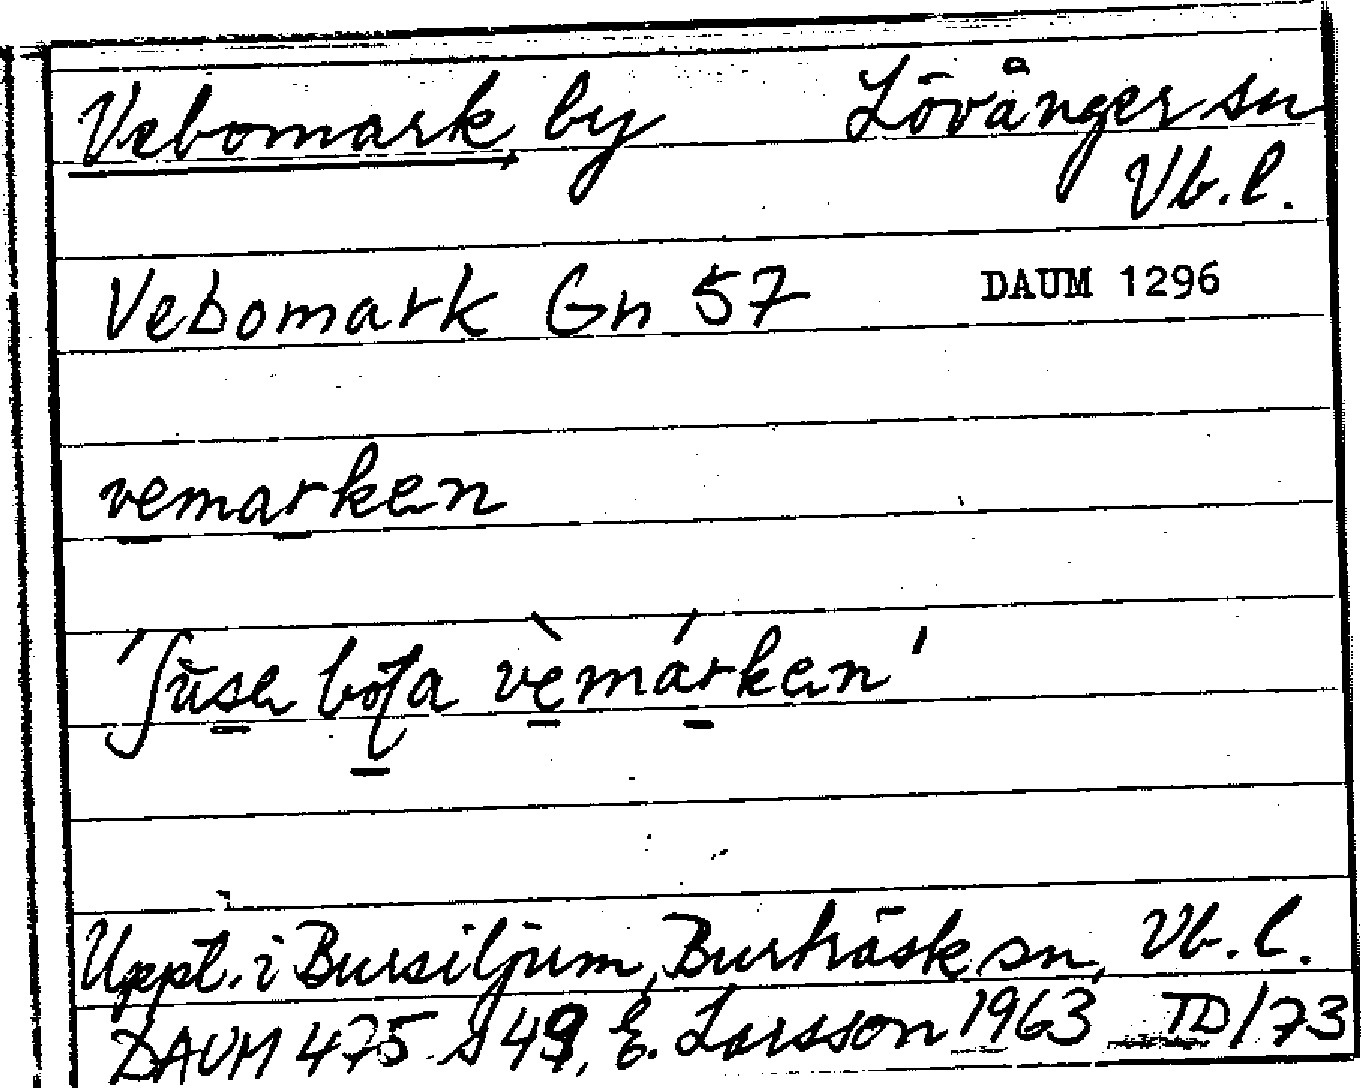 Vebomark, by Lövånger sn
Vb. l.
Vebomark Gn 57 DAUM 1296
vemarken
vèmárken'
Uppt. i Bursiljum, Burträsk sn, Vb. l.
DAUM 475 s 49, E. Larsson 1963 TD/73